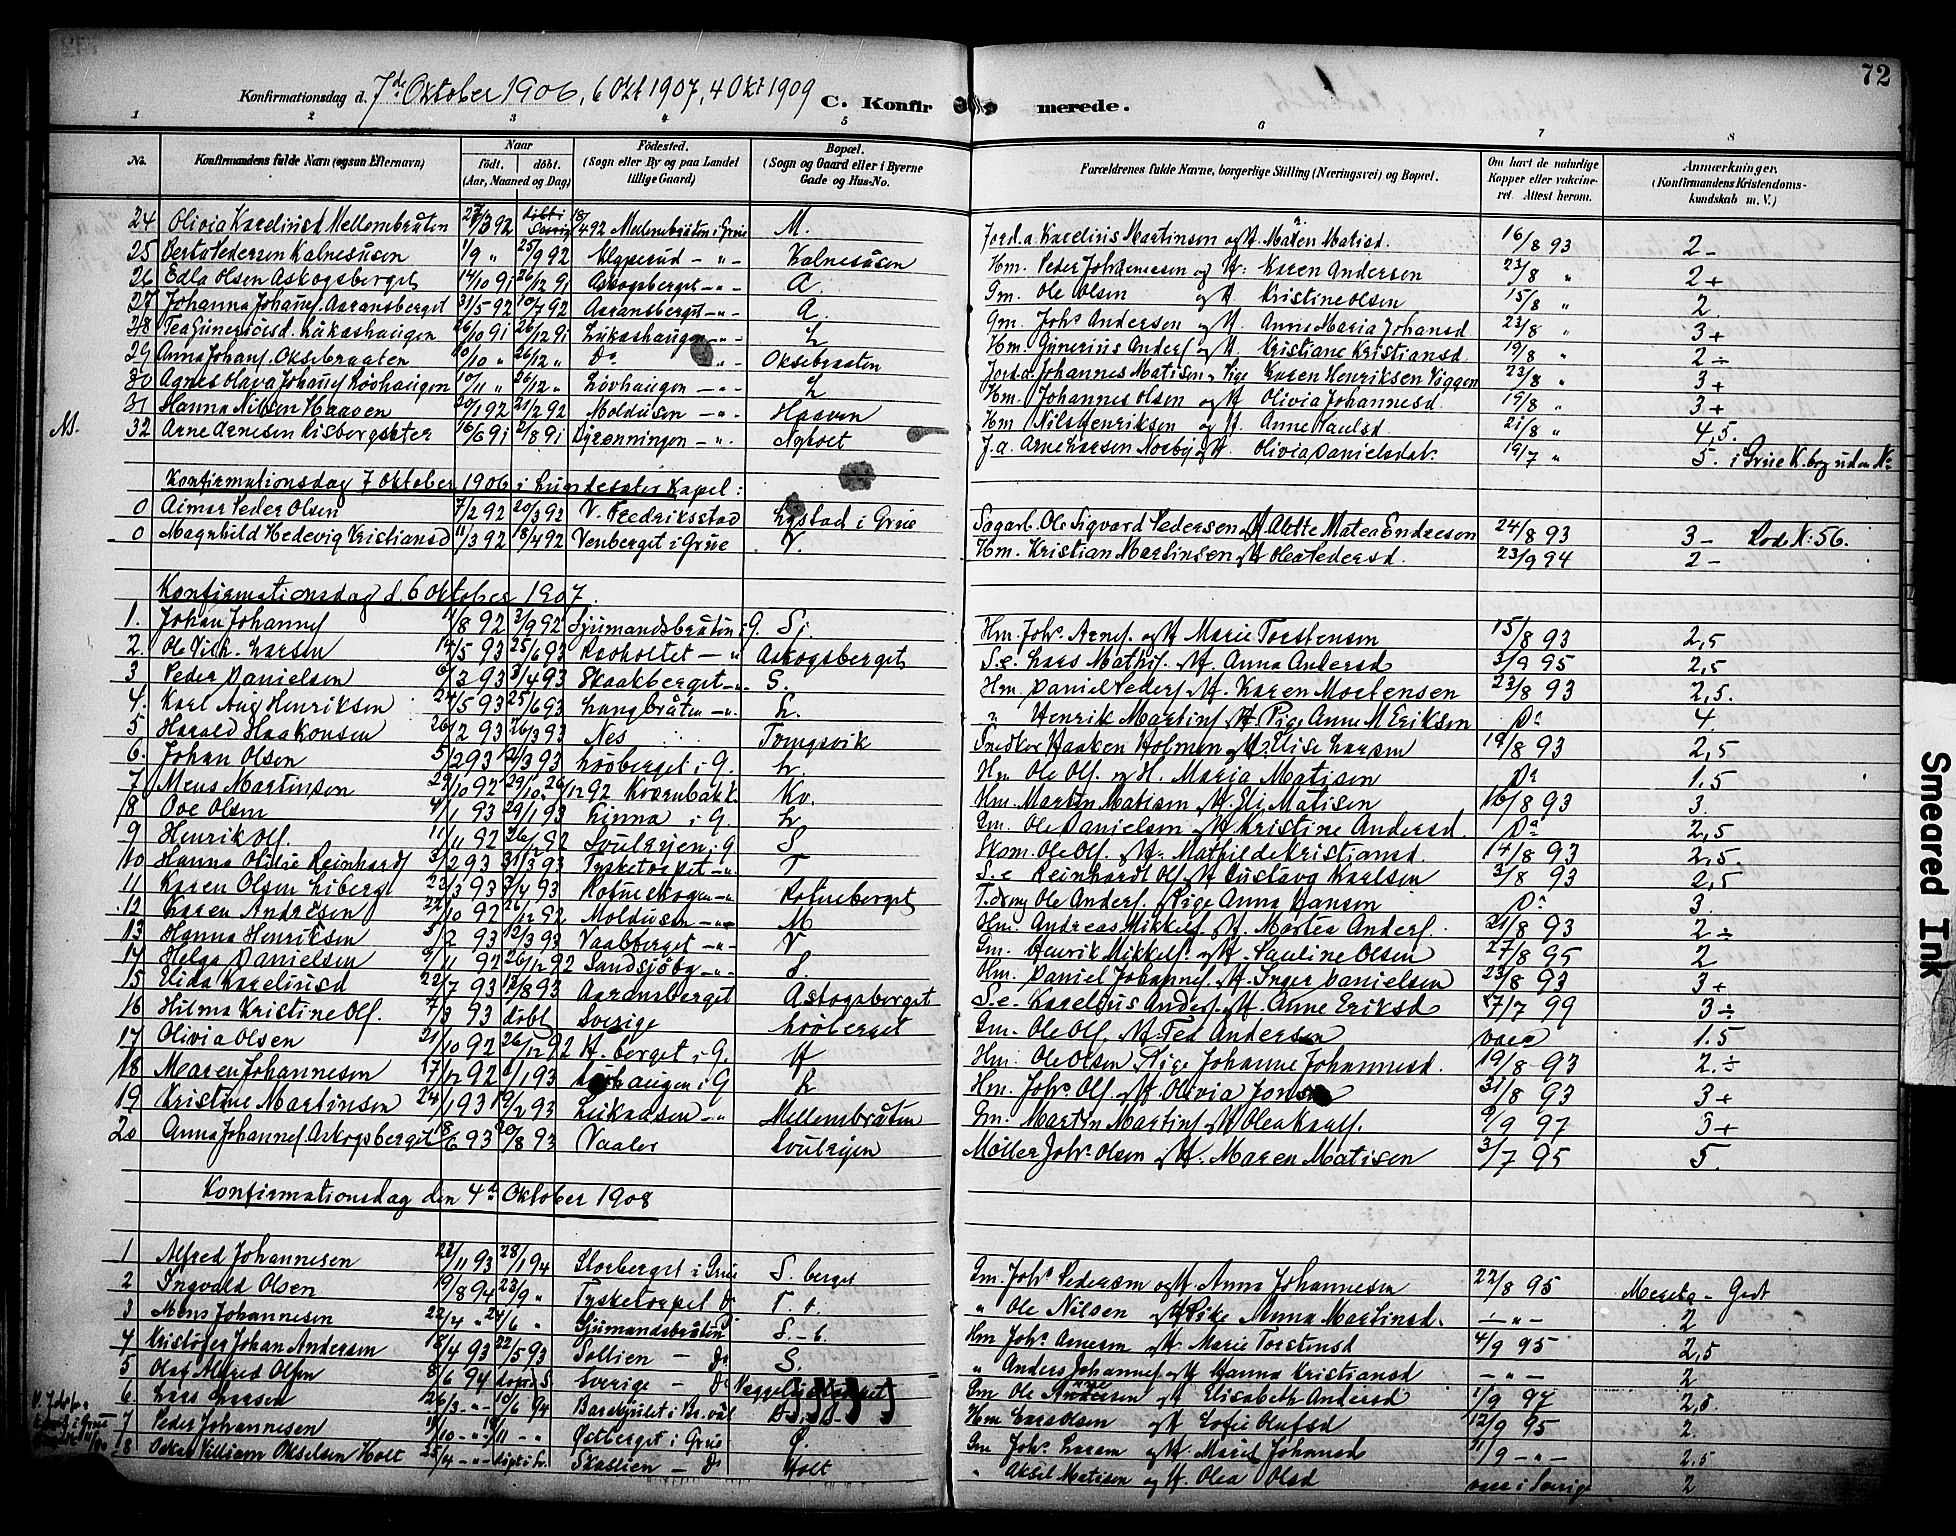 72
Konfirmationsdag d. 7de Oktober 1906, 6 Okt 1907, 4 Okt 1909 C. Konfirmerede.
1 2 3 4 5 6 7 8
No. Konfirmandens fulde Navn (ogsaa Efternavn) Naar født. døbt. (Aar, Maaned og Dag) Fødested. (Sogn eller By og paa Landet tillige Gaard) Bopæl. (Sogn og Gaard eller i Byerne Gade og Hus-No. Forældrenes fulde Navne, borgerlige Stilling (Næringsvei) og Bopæl. Om havt de naturlige Kopper eller vaccineret. Attest herom. Anmærkninger, (Konfirmandens Kristendomskundskab m. V.)
24 Olivia Karelinsd Mellembråten 3 92 Mellembråten i Grue M. Jord.a. Karelius Martinsen og H. Maren Matisd. 16/8 93 2-
25 Berte Pedersen Kalnesåsen 1/9 " 25/9 92 - " - Kalnesåsen Hm. Peder Johannesen og H. Karen Andersen 23/8 " 2+
26 Edla Olsen Askogsberget 14/10 91 26/12 91 Askogsberget - " - A. Gm. Ole Olsen og H. Kristine Olsen 15/8 " 2
27 Johanna Johansf. Aaransberget 31/5 92 10/7 92 Aaransberget - " - A. Gm. Johs Andersen og H. Anna Maria Johansd. 23/8 " 3+
28 Tea Guneriusd. Lukashaugen 26/10 91 26/12 91 Lukashaugen - " - L Hm. Gunerius Andersf og H. Kristiane Kristiansd. 19/8 " 2÷
29 Anna Johansf. Oksebraaten 10/10 " 26/12 " Do - " - Oksebraaten Jord.a Johannes Matisen, Pige Karen Henriksen Viggen 23/8 " 3+
30 Agnes Olava Johansf Løvhaugen 10/11 " 26/12 " Løvhaugen - " - L Hm. Johannes Olsen og H. Olivia Johannesd. 19/8 " 3+
31 Hanna Nilsen Haaven 20/1 92 21/2 92 Moldusen - " - Haaven Hm Nils Henriksen og H. Anne Paulsd. 21/8 " 4,5.
N. 32 Arne Arnesen Risbergseter 16/6 91 2/8 91 Grønningen - " - Nyhoet J.a. Arne Larsen Norby, H. Olivia Danielsdat. 19/7 " 5. i Grue K.bog uden No
Konfirmationsdag 7 Oktober 1906 i Lundersæter Kapel:
0 Aimar Peder Olsen 7/2 92 20/3 92 V. Fredriksstad Lystad i Grue Sagarb. Ole Sigvard Pedersen, H. Alotte Matea Endresen 24/8 93 3- Rode N: 56.
0 Magnhild Hedevig Kristiansd 11/3 92 18/4 92 Venberget i Grue V. Hm. Kristian Martinsen, H. Olea Pedersd. 23/9 94 2-
Konfirmationsdag d. 6 Oktober 1907.
1. Johan Johannesf 1/8 92 3/9 92 Sjumandsbråten i G. Sj. Hm. Johs. Arnesf. og H. Marie Torstensen 15/8 93 2,5
2. Ole Vilh. Larsen 14/5 93 25/6 93 - " Askogsberget S.e. Lars Mathisf. H. Anna Andersd 3/9 95 2,5
3 Peder Danielsen 6/2 93 3/4 93 Skaakberget - " - S. Hm. Daniel Pedersf. H. Karen Mortensen 23/8 93 2,5.
4. Karl Aug Henriksen 24/5 93 25/6 93 Langbråten - " - L. " Henrik Martinsf. Pige Anne M. Eriksen Do 4
5 Harald Haakonsen 26/2 93 26/3 93 Nes Tvengsvik Haaken Holmen, H. Elise Larsen 19/8 93 2,5
6. Johan Olsen 5/2 93 12/3 93 Løvberget i G. L. Hm Ole Olsf. og H. Maria Matisen Do 1.5
7 Mens Martinsen 29/10 92 26/12 92 Kvernbakk. Kv. Hm. Martin Matisen, H. Eli Matisen 16/8 93 3
8 Ove Olsen 4/1 93 29/1 93 Linna i G. L Gm. Ole Danielsen, H. Kristine Andersd. Do 2,5
9 Henrik Olsf. 11/11 92 26/12 92 Svulryen i G S Hom. Ole Olsf. H. Mathilde Kristiansd. 14/8 93 2,5.
10 Hanna Olilie Reinhardsf 3/2 93 31/3 93 Tysketorpet - " - T S.e Reinhardt Olsf, H. Gustava Karlsen 3/8 93 2,5
11 Karen Olsen Liberg 22/3 93 3/4 93 Rotneskogen - " Rotneberget Ole Andersf. Pige Anna Hansen Do 3
12 Karen Andresen 22/10 92 26/12 92 Moldusen - " - M Hm. Andreas Mikkelsf. H. Martea Andersf. 21/8 93 2÷
13 Hanna Henriksen 3/2 93 12/3 93 Vaalberget - " - V Gm. Henrik Mikkelsf. og H. Pauline Olsen 27/8 95 2
14 Helga Danielsen 9/11 92 26/12 92 Sandsjöby - " - S. Hm. Daniel Johannesf. H. Inger Danielsen 23/8 93 3+
15 Elida Karelinsd 22/7 93 17/8 93 Aaransberget Askogsberget S.e. Karelius Andersf. H. Anne Eriksd 27/7 99 3÷
16 Hilma Kristine Olsf. 7/3 93 døbt Sverige Løvberget Gm. Ole Olsf. H. Tea Andersen 1.5
17 Olivia Olsen 21/10 92 26/12 92 H.berget i G. H Hm. Ole Olsen Pige Johanne Johannesd. 19/8 93 2.÷
18 Maren Johannesen 17/12 92 6/1 93 Løvhaugen i G L Hm. Johs Olsf. H. Olivia Jonsen 31/8 93 3+
19 Kristine Martinsen 24/1 93 19/2 93 - " - Mellembråten Gm. Martin Martinsf, H. Olea 9/9 97 3+
20 Anna Johannesf Askogsberget 18/6 93 20/8 93 Vaaler Svulryen Møller Johs Olsen, H. Maren Matisen 3/7 95 5.
Konfirmationsdag den 4de Oktober 1908
1 Alfred Johannesen 22/11 93 28/1 94 Storberget i Grue S. berget Gm. Johs Pedersen og H. Anna Johannesen 22/8 95 Meget - Godt
2 Ingvald Olsen 19/8 94 23/9 " Tysketorpet Do T. t. " Ole Nilsen Pike Anna Martinsd. - " - 2
3 Mens Johannesen 22/4 " 24/6 " Sjumandsbråten S. - b. Hm Johs. Arnesen, H. Marie Torstensd 4/9 95 2,5
4 Kristofer Johan Andersen 18/4 93 22/5 93 Sollien - Do S. " Anders Johannesf, H. Hanna Kristiansd - " - 2
5 Olaf Alfred Olsen 8/6 94 Sverige - Do Gm Ole Andersen, H. Elisabeth Andersd 1/9 97 2,5.
6 Lars Larsen 26/3 - " - 10/6 94 Hm Lars Olsen, H. Sofie Olufsd 12/9 95 2.
7 Peder Johannesen Østberget i Grue Ø. Gm Johs. Larsen, H. Marie Johansd 11/9 - " - 2,5
8 Oskar Villiam Akselsen Holt 25/4 - " - Skaslien - Do Holt " Aksel Matisen og H. Olea Olsd vacc i Sverige 2
Smeared Ink